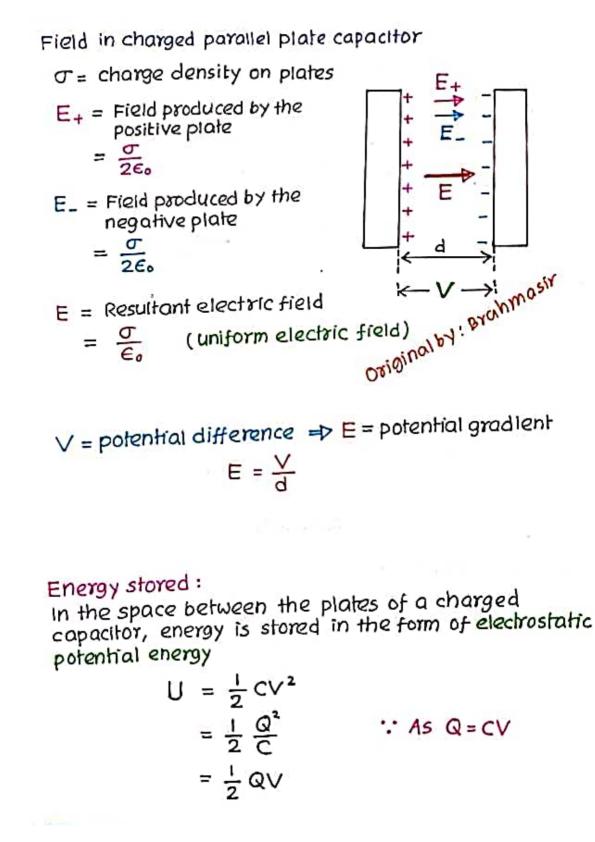 Field in charged parallel plate capacitor
σ = charge density on plates
E+ = Field produced by the
positive plate
= σ/2ϵ₀
E- = Field produced by the
negative plate
= σ/2ϵ₀
E = Resultant electric field
= σ/ϵ₀ (uniform electric field)
E+
E-
E
+ + + + + + +
- - - - - - -
d
V
Original by: Brahmasir
V = potential difference ⇒ E = potential gradient
E = V/d
Energy stored :
In the space between the plates of a charged
capacitor, energy is stored in the form of electrostatic
potential energy
U = 1/2 CV²
= 1/2 Q²/C ∵ As Q = CV
= 1/2 QV